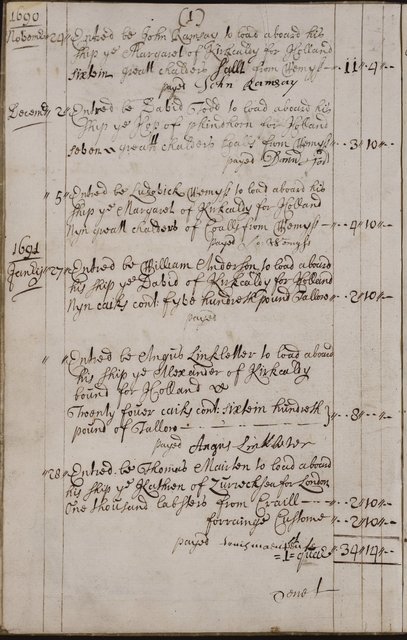 1690 (1)
November 24 Entred be John Ramsay to load aboard his
ship ye Margaret of Kirkcaldy for Holland
sixtein greatt chalders Sallt from Wemys -- 11 -- 4 --
payed John Ramsay
Decemr 2 Entred be David Todd to load aboard his
ship ye Hop of phindhorn for Holland
seven greatt chalders from Wemys -- 3 -- 10 --
payed
" 5 Entred be Ludovick Wemys to load aboard his
ship ye Margaret of Kirkcaldy for Holland
Nyn greatt chalders of Coall from Wemys -- 4 -- 10 --
payed Lo: Wemyss
1691
Janry 27 Entred be William Anderson to load aboard
his ship ye David of Kirkcaldy for Holland
Nyn casks cont: fyve hundreth pound Tallow -- 2 -- 10 --
payed
" " Entred be Angus Linkletter to load aboard
his ship ye Alexander of Kirkcaldy
bound for Holland
Twenty fouer casks cont: sixtein hundreth
pound of Tallow -- 8 --
payed Angus Linkleter
" 28 Entred be Thomas Mairten to load aboard
his ship ye Kathren of Zurecksea for London
One thousand labsters from Craill -- 2 -- 10 --
forrainge Custome -- 2 -- 10 --
payed
= 1st quar 34 14 --